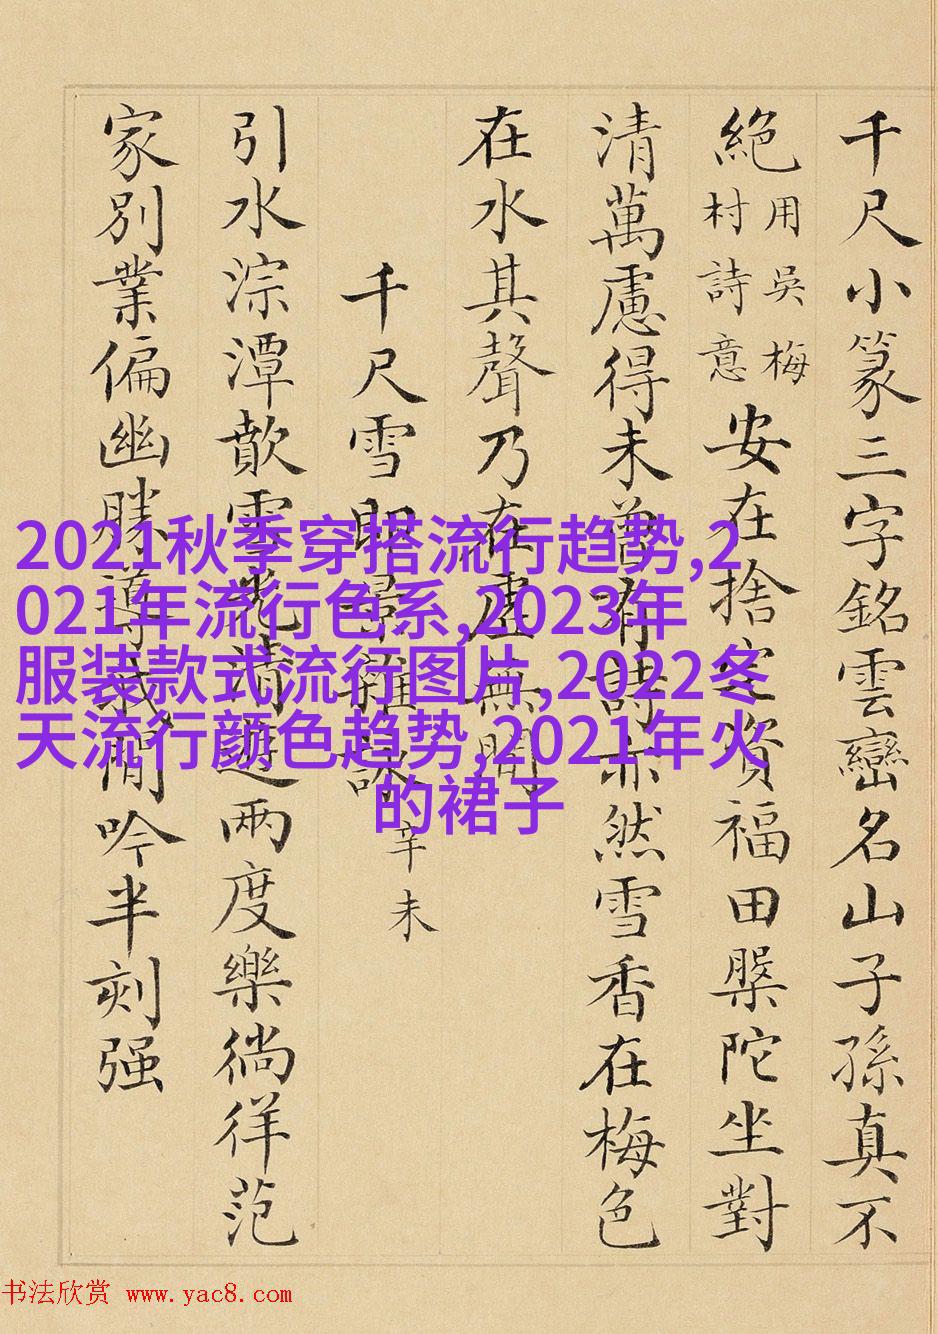 千尺小篆三字銘雲巒名山子孫真不
絕用吳梅村詩意安在捨宅資福田槃陀坐對
清萬慮得未曾有詩亦然雪香在梅色
在水其聲乃在虛無間
千尺雪即景雜詠辛未
引水淙潭歕雪光清遊兩度樂徜徉范
家別業偏幽勝導我閒吟半刻强
2021秋季穿搭流行趋势,2
021年流行色系,2023年
服装款式流行图片,2022冬
天流行颜色趋势,2021年火
的裙子
书法欣赏 www.yac8.com